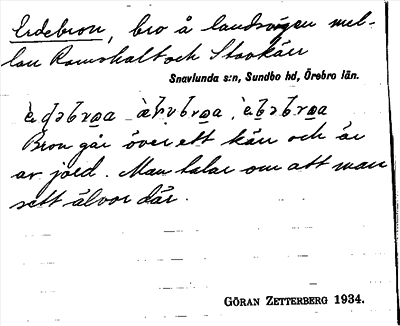 Erdebron, bro å landsvägen mel-
lan Ramshult och Storkärr
Snavlunda s:n, Sundbo hd, Örebro län.
Bron går över ett kärr och är
av jord. Man talar om att man
sett älvor där.
GÖRAN ZETTERBERG 1934.